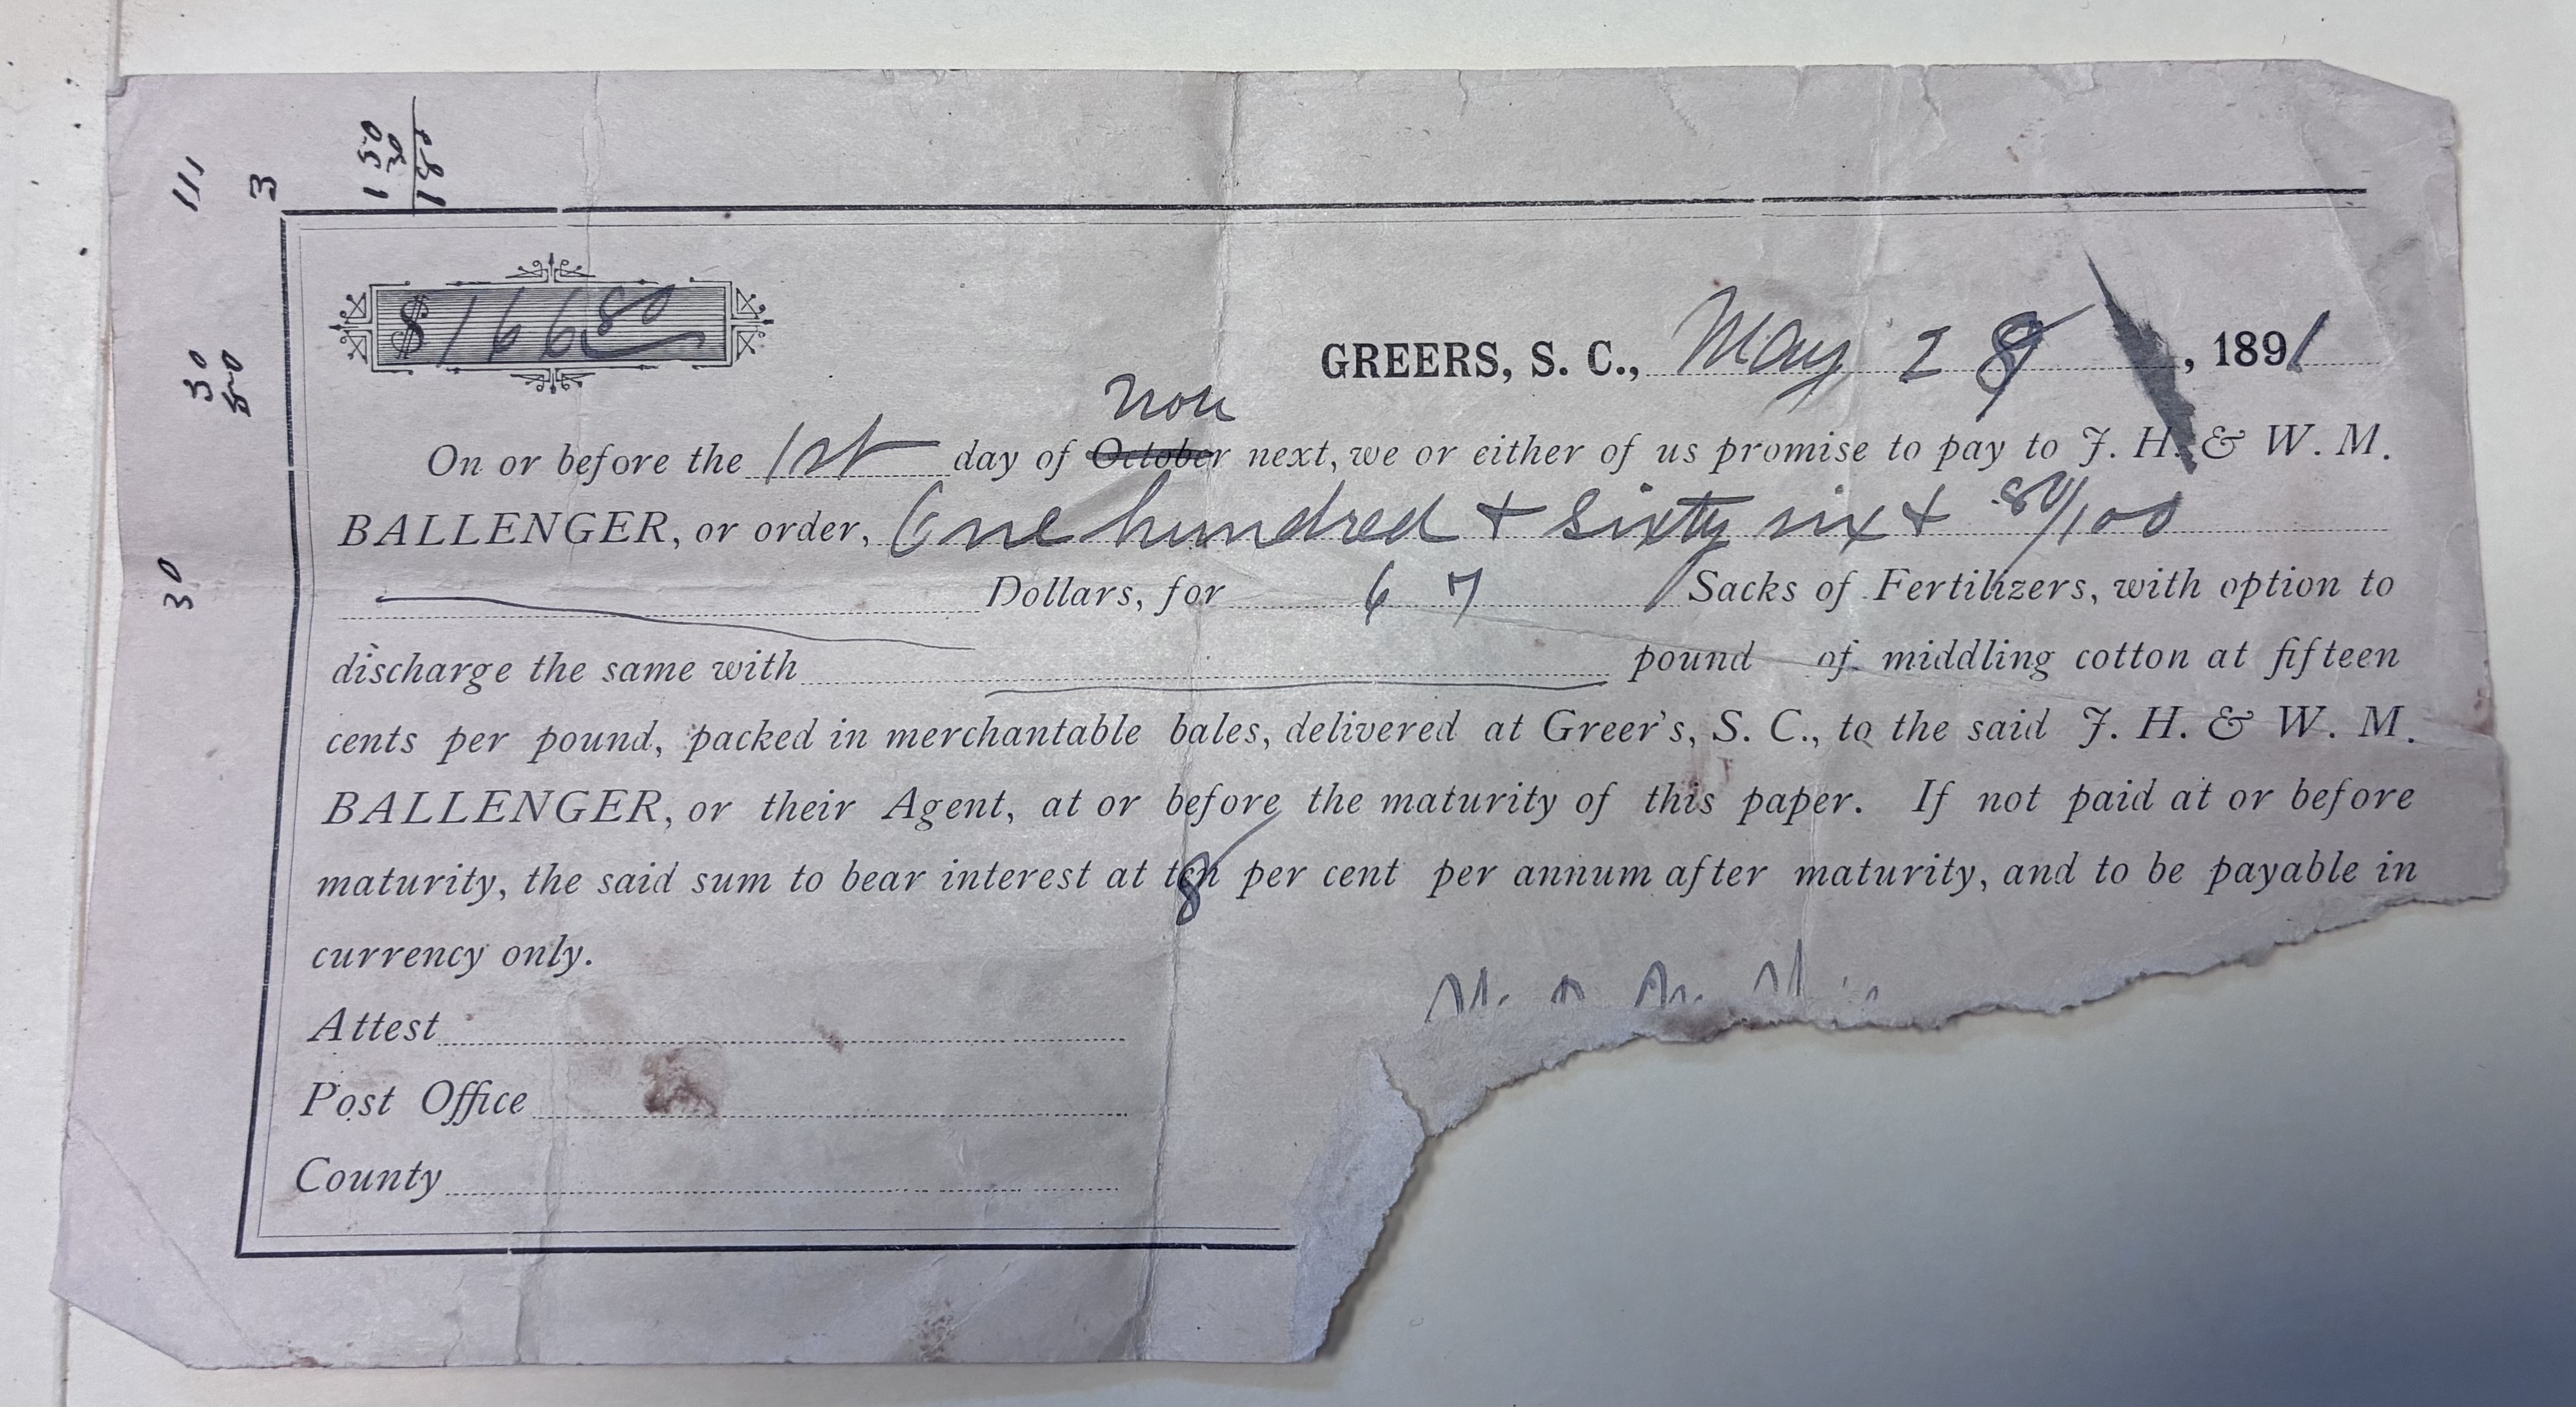 111
3
150
30
180
30
50
30
$166 80
GREERS, S. C., May 28, 1891
Nov
On or before the 1st day of October next, we or either of us promise to pay to J. H. & W. M.
BALLENGER, or order, One hundred + Sixty six + 80/100
Dollars, for 67 Sacks of Fertilizers, with option to
discharge the same with pound of middling cotton at fifteen
cents per pound, packed in merchantable bales, delivered at Greer's, S. C., to the said J. H. & W. M.
BALLENGER, or their Agent, at or before the maturity of this paper. If not paid at or before
maturity, the said sum to bear interest at ten 8 per cent per annum after maturity, and to be payable in
currency only.
Attest
Post Office
County